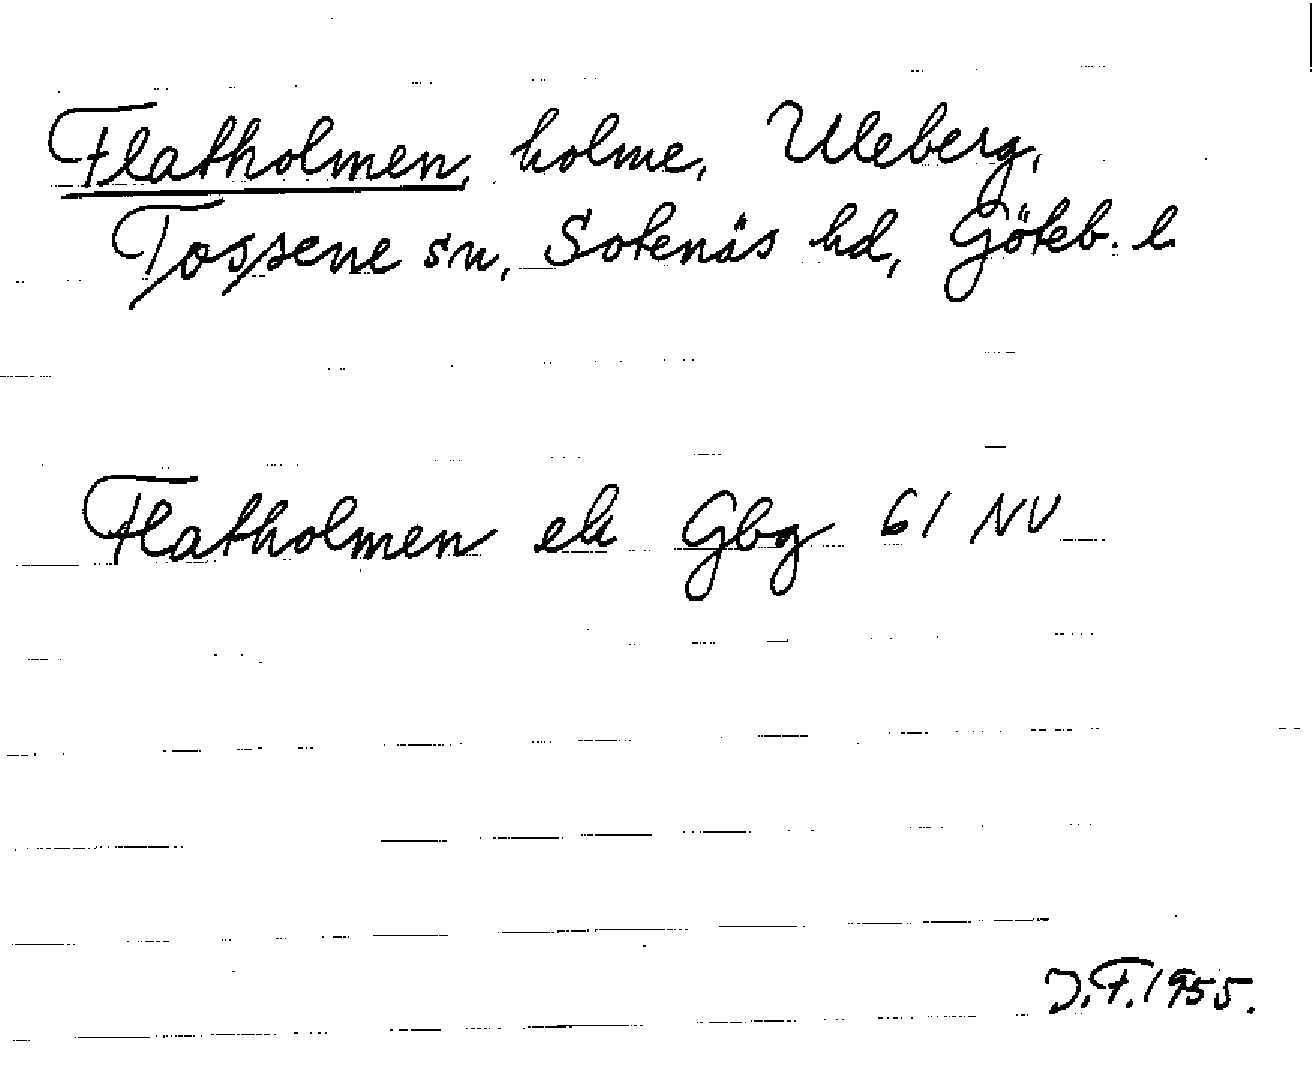 Flatholmen, holme, Uleberg,
Tossene sn, Sotenäs hd, Göteb. l.
Flatholmen ek Gbg 61 NV
J.F. 1955.